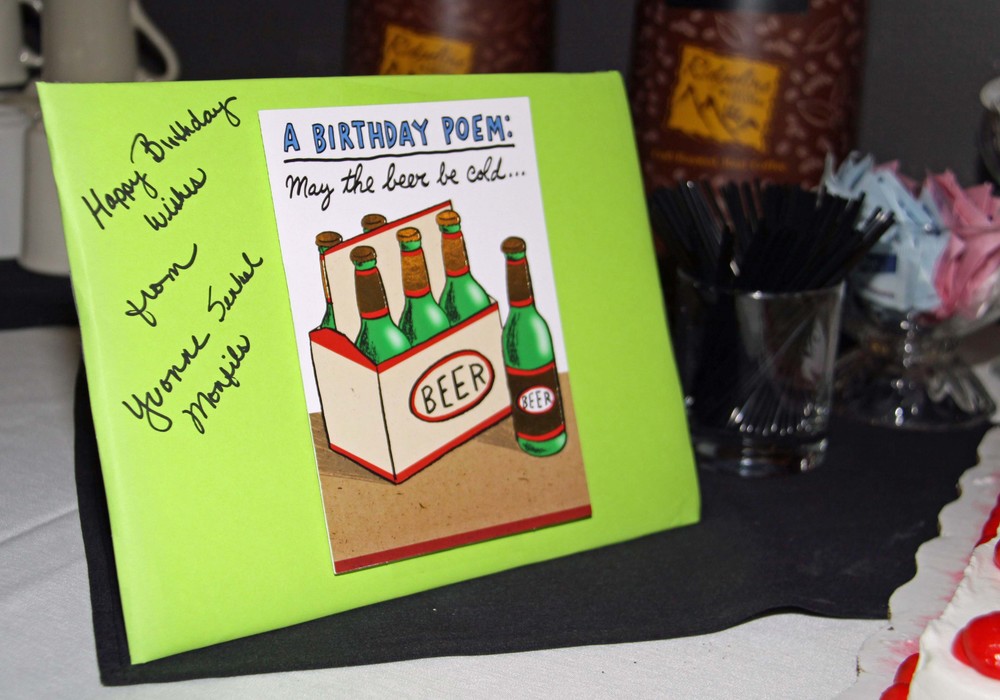 Happy Birthday
Wishes
from
Yvonne Senkel
Monfils
A BIRTHDAY POEM:
May the beer be cold...
BEER
BEER